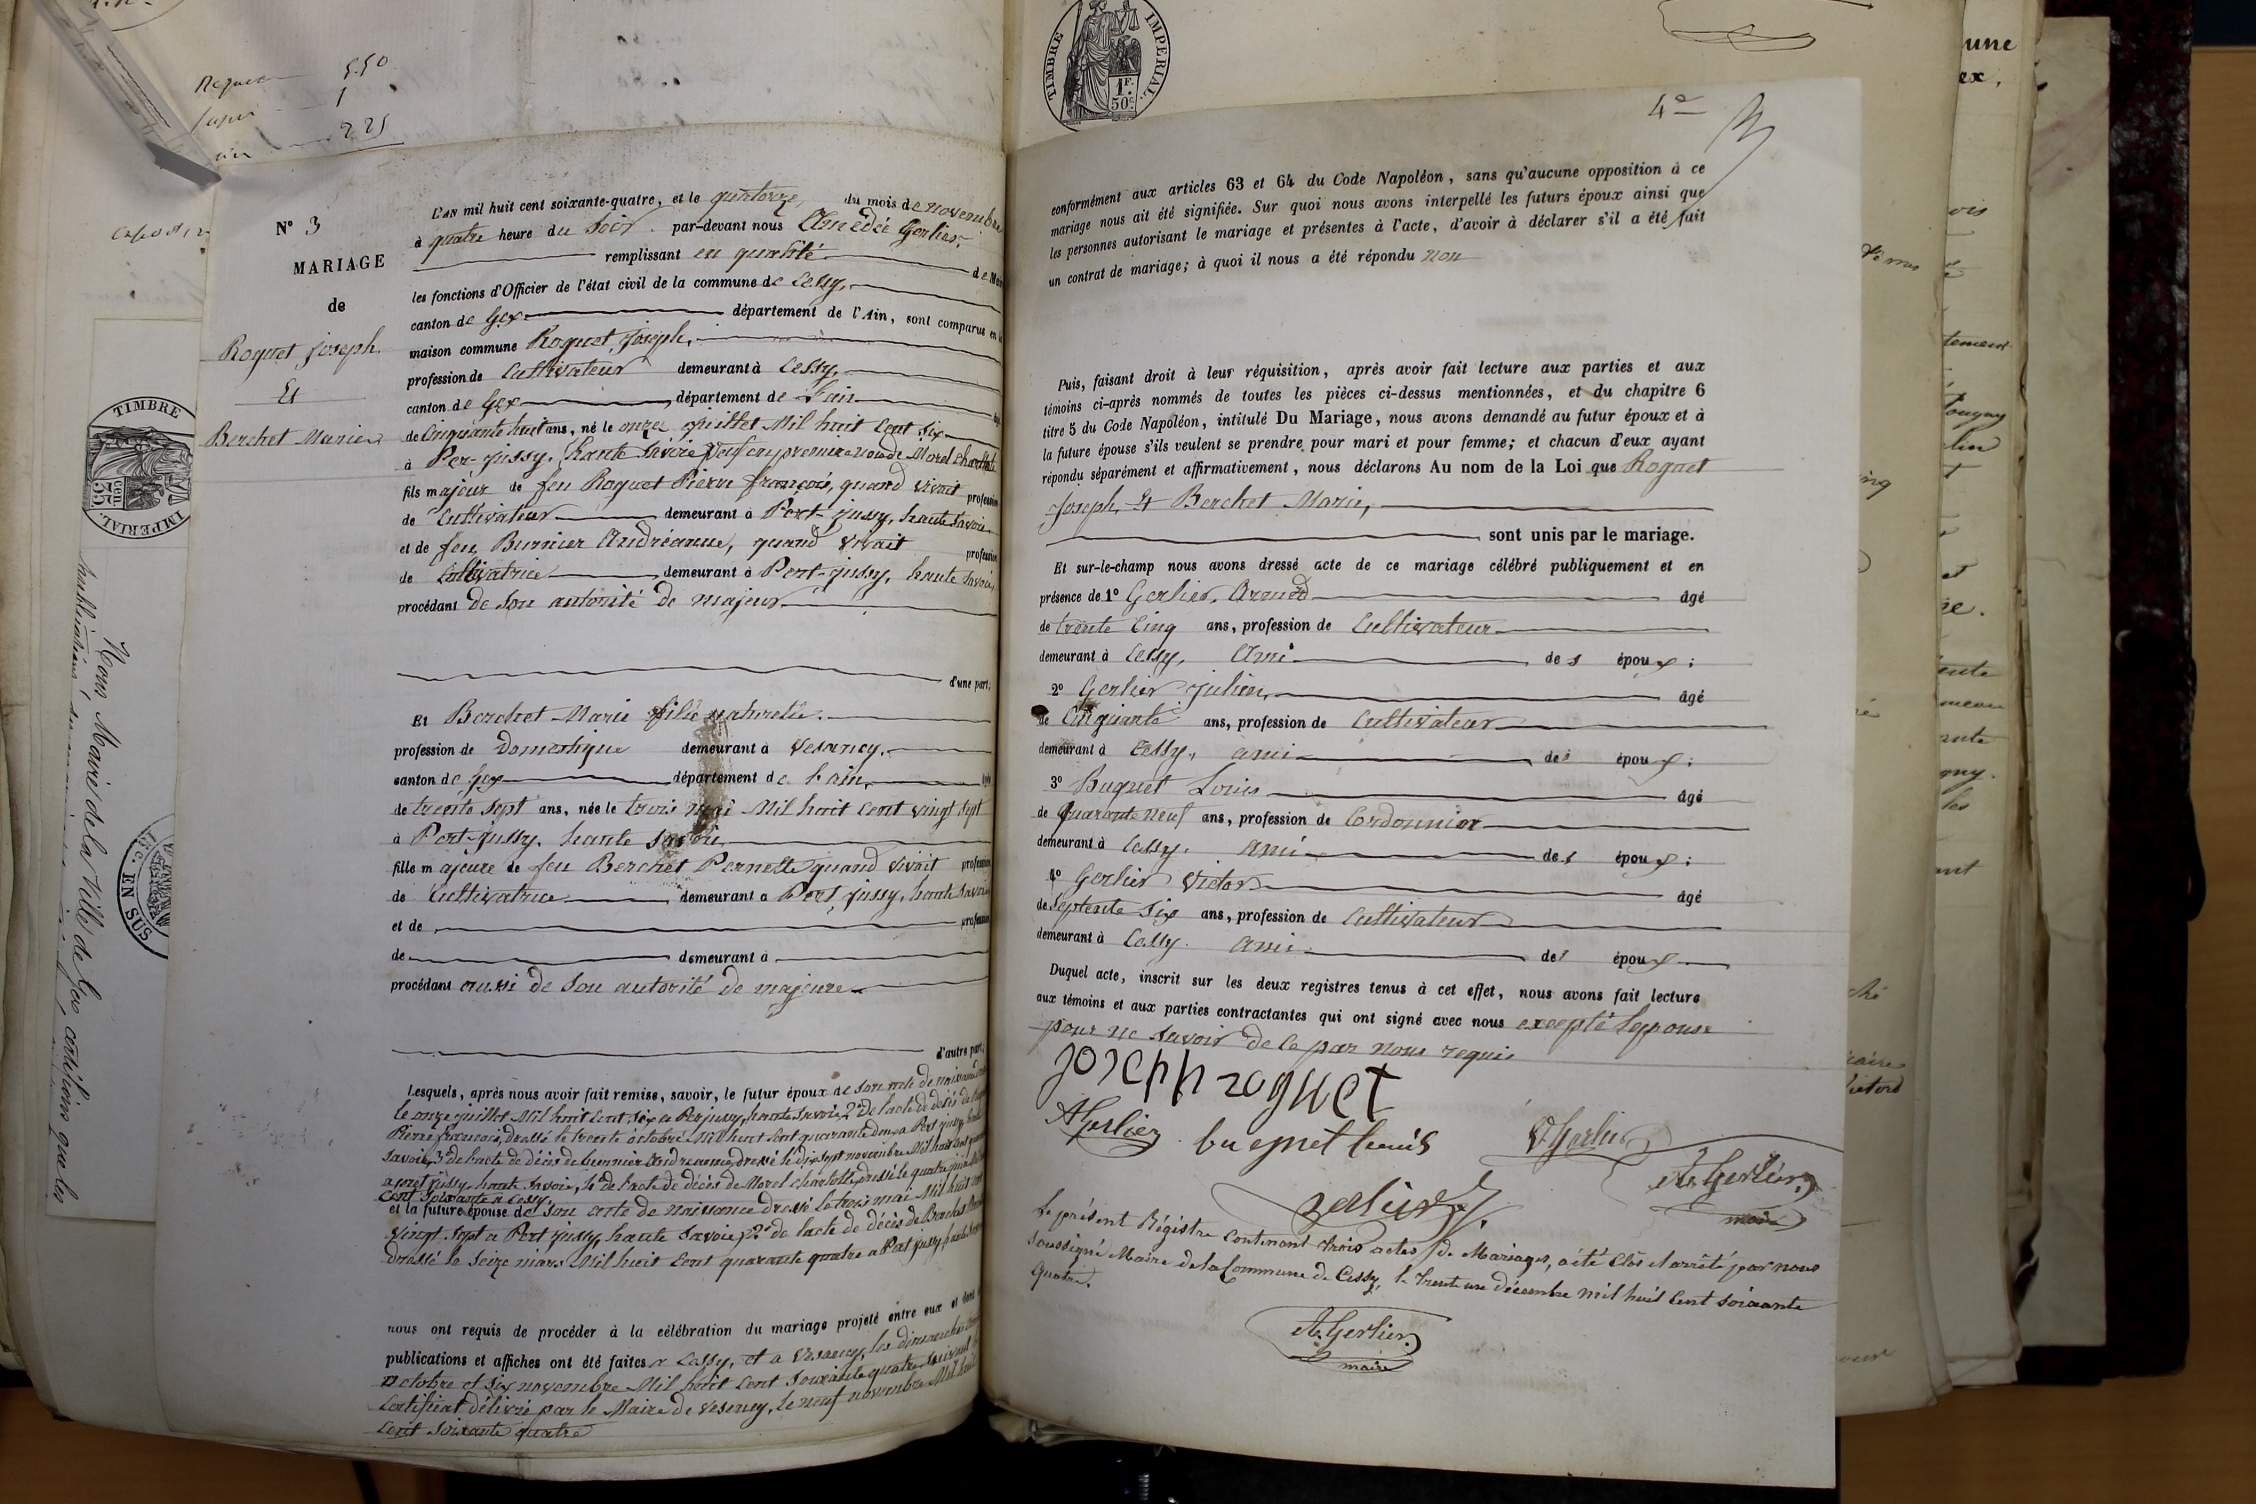 5.50
1
2 25
TIMBRE IMPERIAL
1F. 50c.
TIMBRE IMPERIAL
35 cen
EN SUS
Nous, Maire de la Ville de Gex, certifions que les
une
ex,
N° 3
MARIAGE
de
Roguet Joseph
Et
Berchet Marie
L'AN mil huit cent soixante-quatre, et le quatorze, du mois de novembre
à quatre heure du soir par-devant nous Amédée Gerlier,
remplissant en qualité de
les fonctions d'Officier de l'état civil de la commune de Cessy,
canton de Gex département de l'Ain, sont comparus en la
maison commune Roguet Joseph,
profession de Cultivateur demeurant à Cessy,
canton de Gex département de L'ain
de Cinquante huit ans, né le onze juillet Mil huit Cent Six
à Per-Jussy, haute Savoie Veuf en premiere de Morel Charlotte
fils majeur de feu Roguet Pierre françois, quand vivait profession
de Cultivateur demeurant à Pert-jussy, haute Savoie
et de feu Burnier Andréanne, quand vivait profession
de Cultivatrice demeurant à Pert-jussy, haute Savoie,
procédant de son autorité de majeur
d'une part;
Et Berchet Marie fille naturelle.
profession de domestique demeurant à Vesancy,
canton de Gex département de L'ain,
de trente sept ans, née le trois mai Mil huit Cent vingt sept
à Pert-jussy, haute Savoie,
fille majeure de feu Berchet Pernette quand vivait profession
de Cultivatrice demeurant à Pert jussy, haute Savoie
et de profession
de demeurant à
procédant aussi de son autorité de majeure
d'autre part;
Lesquels, après nous avoir fait remise, savoir, le futur époux de son acte de naissance
le onze juillet Mil huit Cent Six a Perjussy, haute Savoie, 2° de l'acte de décès de
Pierre françois, dressé le trente octobre Mil huit Cent quarante deux a Pert jussy haute
Savoie, 3° de l'acte de décès de burnier Andreanne, dressé le dix sept novembre Mil huit Cent
a pert jussy, haute Savoie, 4° de l'acte de décès de Morel Charlotte, dressé le quatre
Cent Soixante a Cessy,
et la future épouse de son acte de naissance dressé le trois mai Mil huit Cent
vingt Sept a Pert jussy, haute Savoie, 2° de l'acte de décès de Berchet
dressé le Seize mars Mil huit Cent quarante quatre a Pert jussy, haute Savoie
nous ont requis de procéder à la célébration du mariage projeté entre eux et dont
publications et affiches ont été faites a Cessy, et a Vesancy, les dimanches
octobre et Six novembre Mil huit Cent Soixante quatre suivant
Certificat délivré par le Maire de Vesancy, le neuf novembre Mil huit
Cent Soixante quatre
4e
conformément aux articles 63 et 64 du Code Napoléon, sans qu'aucune opposition à ce
mariage nous ait été signifiée. Sur quoi nous avons interpellé les futurs époux ainsi que
les personnes autorisant le mariage et présentes à l'acte, d'avoir à déclarer s'il a été fait
un contrat de mariage; à quoi il nous a été répondu non
Puis, faisant droit à leur réquisition, après avoir fait lecture aux parties et aux
témoins ci-après nommés de toutes les pièces ci-dessus mentionnées, et du chapitre 6
titre 5 du Code Napoléon, intitulé Du Mariage, nous avons demandé au futur époux et à
la future épouse s'ils veulent se prendre pour mari et pour femme; et chacun d'eux ayant
répondu séparément et affirmativement, nous déclarons Au nom de la Loi que Roguet
Joseph Et Berchet Marie,
sont unis par le mariage.
Et sur-le-champ nous avons dressé acte de ce mariage célébré publiquement et en
présence de 1° Gerlier, âgé
de trente Cinq ans, profession de Cultivateur
demeurant à Cessy, Ami des époux;
2° Gerlier Julien, âgé
de Cinquante ans, profession de Cultivateur
demeurant à Cessy, ami des époux;
3° Buquet Louis âgé
de quarante neuf ans, profession de Cordonnier
demeurant à Cessy, ami des époux;
4° Gerlier Victor âgé
de Septente Six ans, profession de Cultivateur
demeurant à Cessy. ami des époux
Duquel acte, inscrit sur les deux registres tenus à cet effet, nous avons fait lecture
aux témoins et aux parties contractantes qui ont signé avec nous excepté l'épouse
pour ne savoir de ce par nous requis
Joseph roguet
A Gerlier
buquet Louis
V Gerlier
A. Gerlier
maire
Le présent Régistre contenant trois actes de Mariages, a été Clos et arrêté par nous
Soussigné Maire de la Commune de Cessy, le trente un décembre mil huit Cent soixante
Quatre.
A. Gerlier
maire